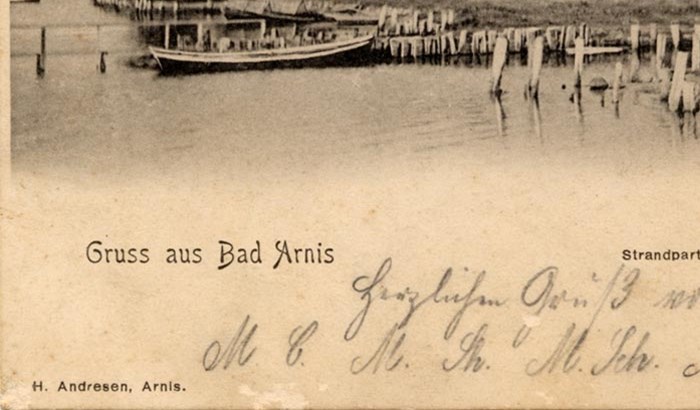 Gruss aus Bad Arnis
Strandpart
Herzlichen Gruß
M. C. M. Sch. M. Sch.
H. Andresen, Arnis.